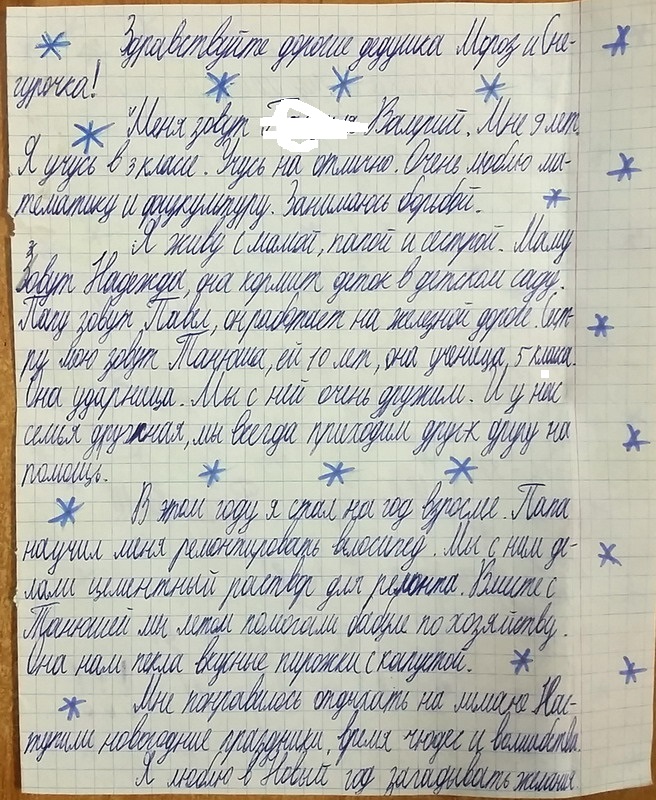 Здравствуйте дорогие дедушка Мороз и Сне-
гурочка!
Меня зовут Валерий. Мне 9 лет.
Я учусь в 3 классе. Учусь на отлично. Очень люблю ма-
тематику и физкультуру. Занимаюсь борьбой.
Я живу с мамой, папой и сестрой. Маму
зовут Надежда, она кормит деток в детском саду.
Папу зовут Павел, он работает на железной дороге. Сест-
ру мою зовут Танюша, ей 10 лет, она ученица, 5 класса.
Она ударница. Мы с ней очень дружим. И у нас
семья дружная, мы всегда приходим друг к другу на
помощь.
В этом году я стал на год взрослее. Папа
научил меня ремонтировать велосипед. Мы с ним де-
лали цементный раствор для ремонта. Вместе с
Танюшей мы летом помогали бабуле по хозяйству.
Она нам пекла вкусные пирожки с капустой.
Мне понравилось отдыхать на лимане. Нас-
тупили новогодние праздники, время чюдес и волшебства.
Я люблю в Новый год загадывать желания.